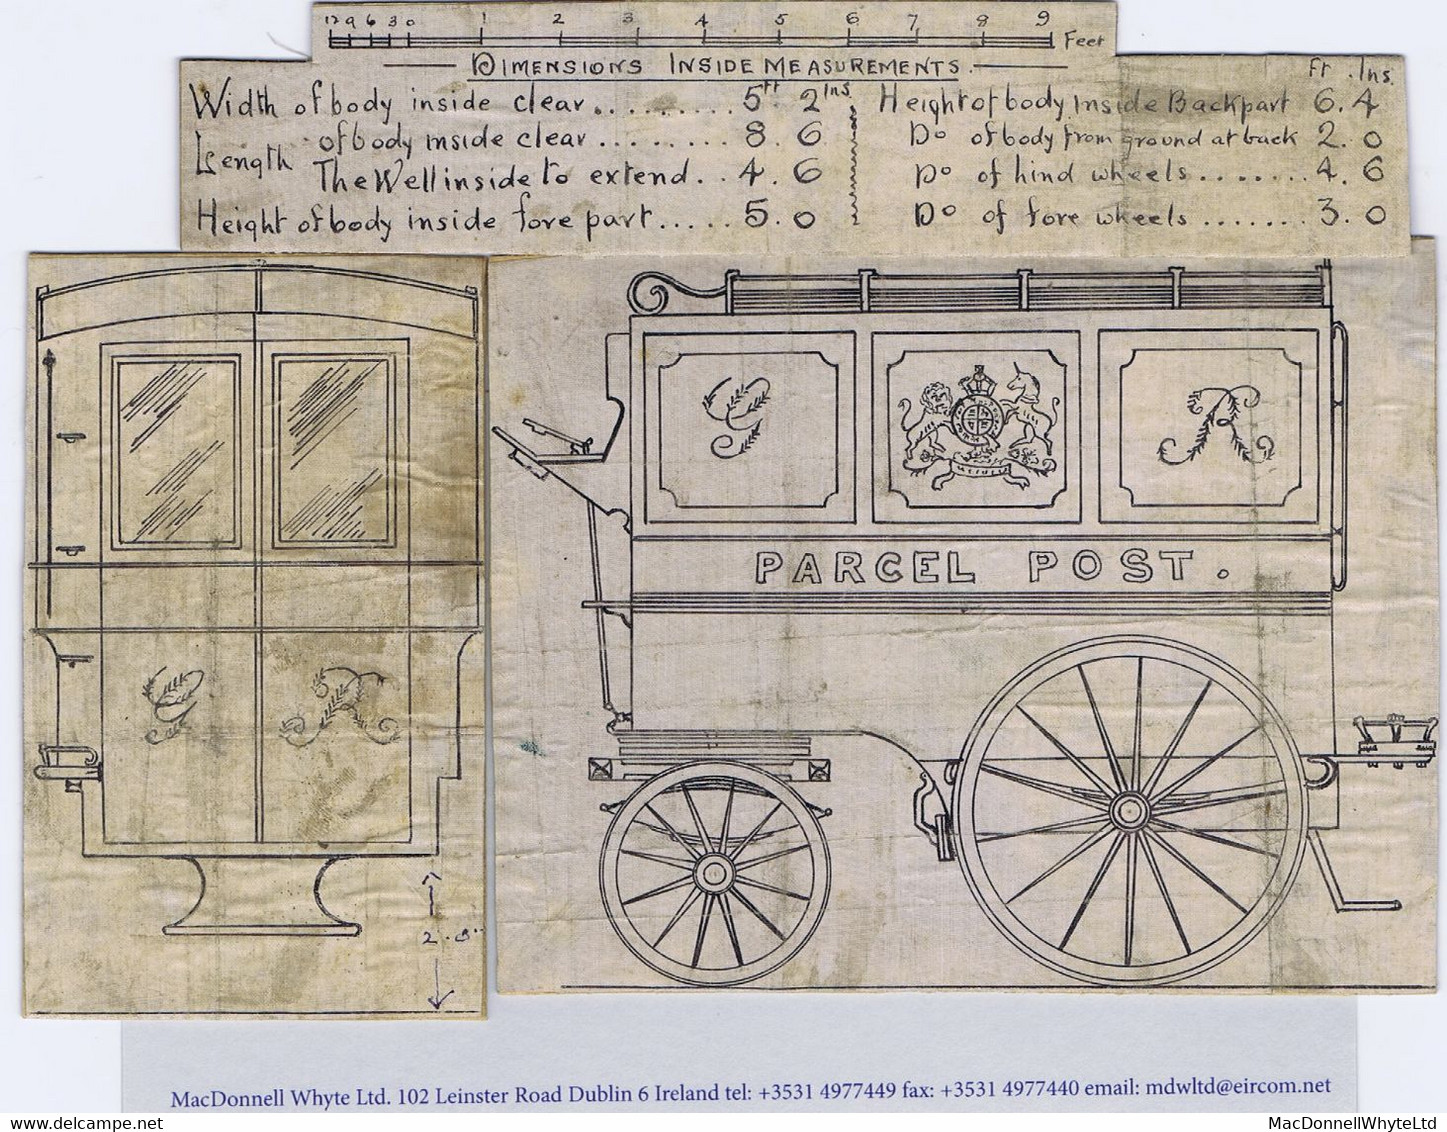 12 9 6 3 0 1 2 3 4 5 6 7 8 9
Feet
DIMENSIONS INSIDE MEASUREMENTS.
Ft. Ins.
Width of body inside clear......... 5ft. 2Ins.
Length of body inside clear........ 8. 6
The Well inside to extend.. 4. 6
Height of body inside fore part..... 5. 0
Height of body Inside Backpart 6. 4
Do of body from ground at back 2. 0
Do of hind wheels....... 4. 6
Do of fore wheels....... 3. 0
G R
PARCEL POST.
G R
MacDonnell Whyte Ltd. 102 Leinster Road Dublin 6 Ireland tel: +3531 4977449 fax: +3531 4977440 email: mdwltd@eircom.net
MacDonnellWhyteLtd